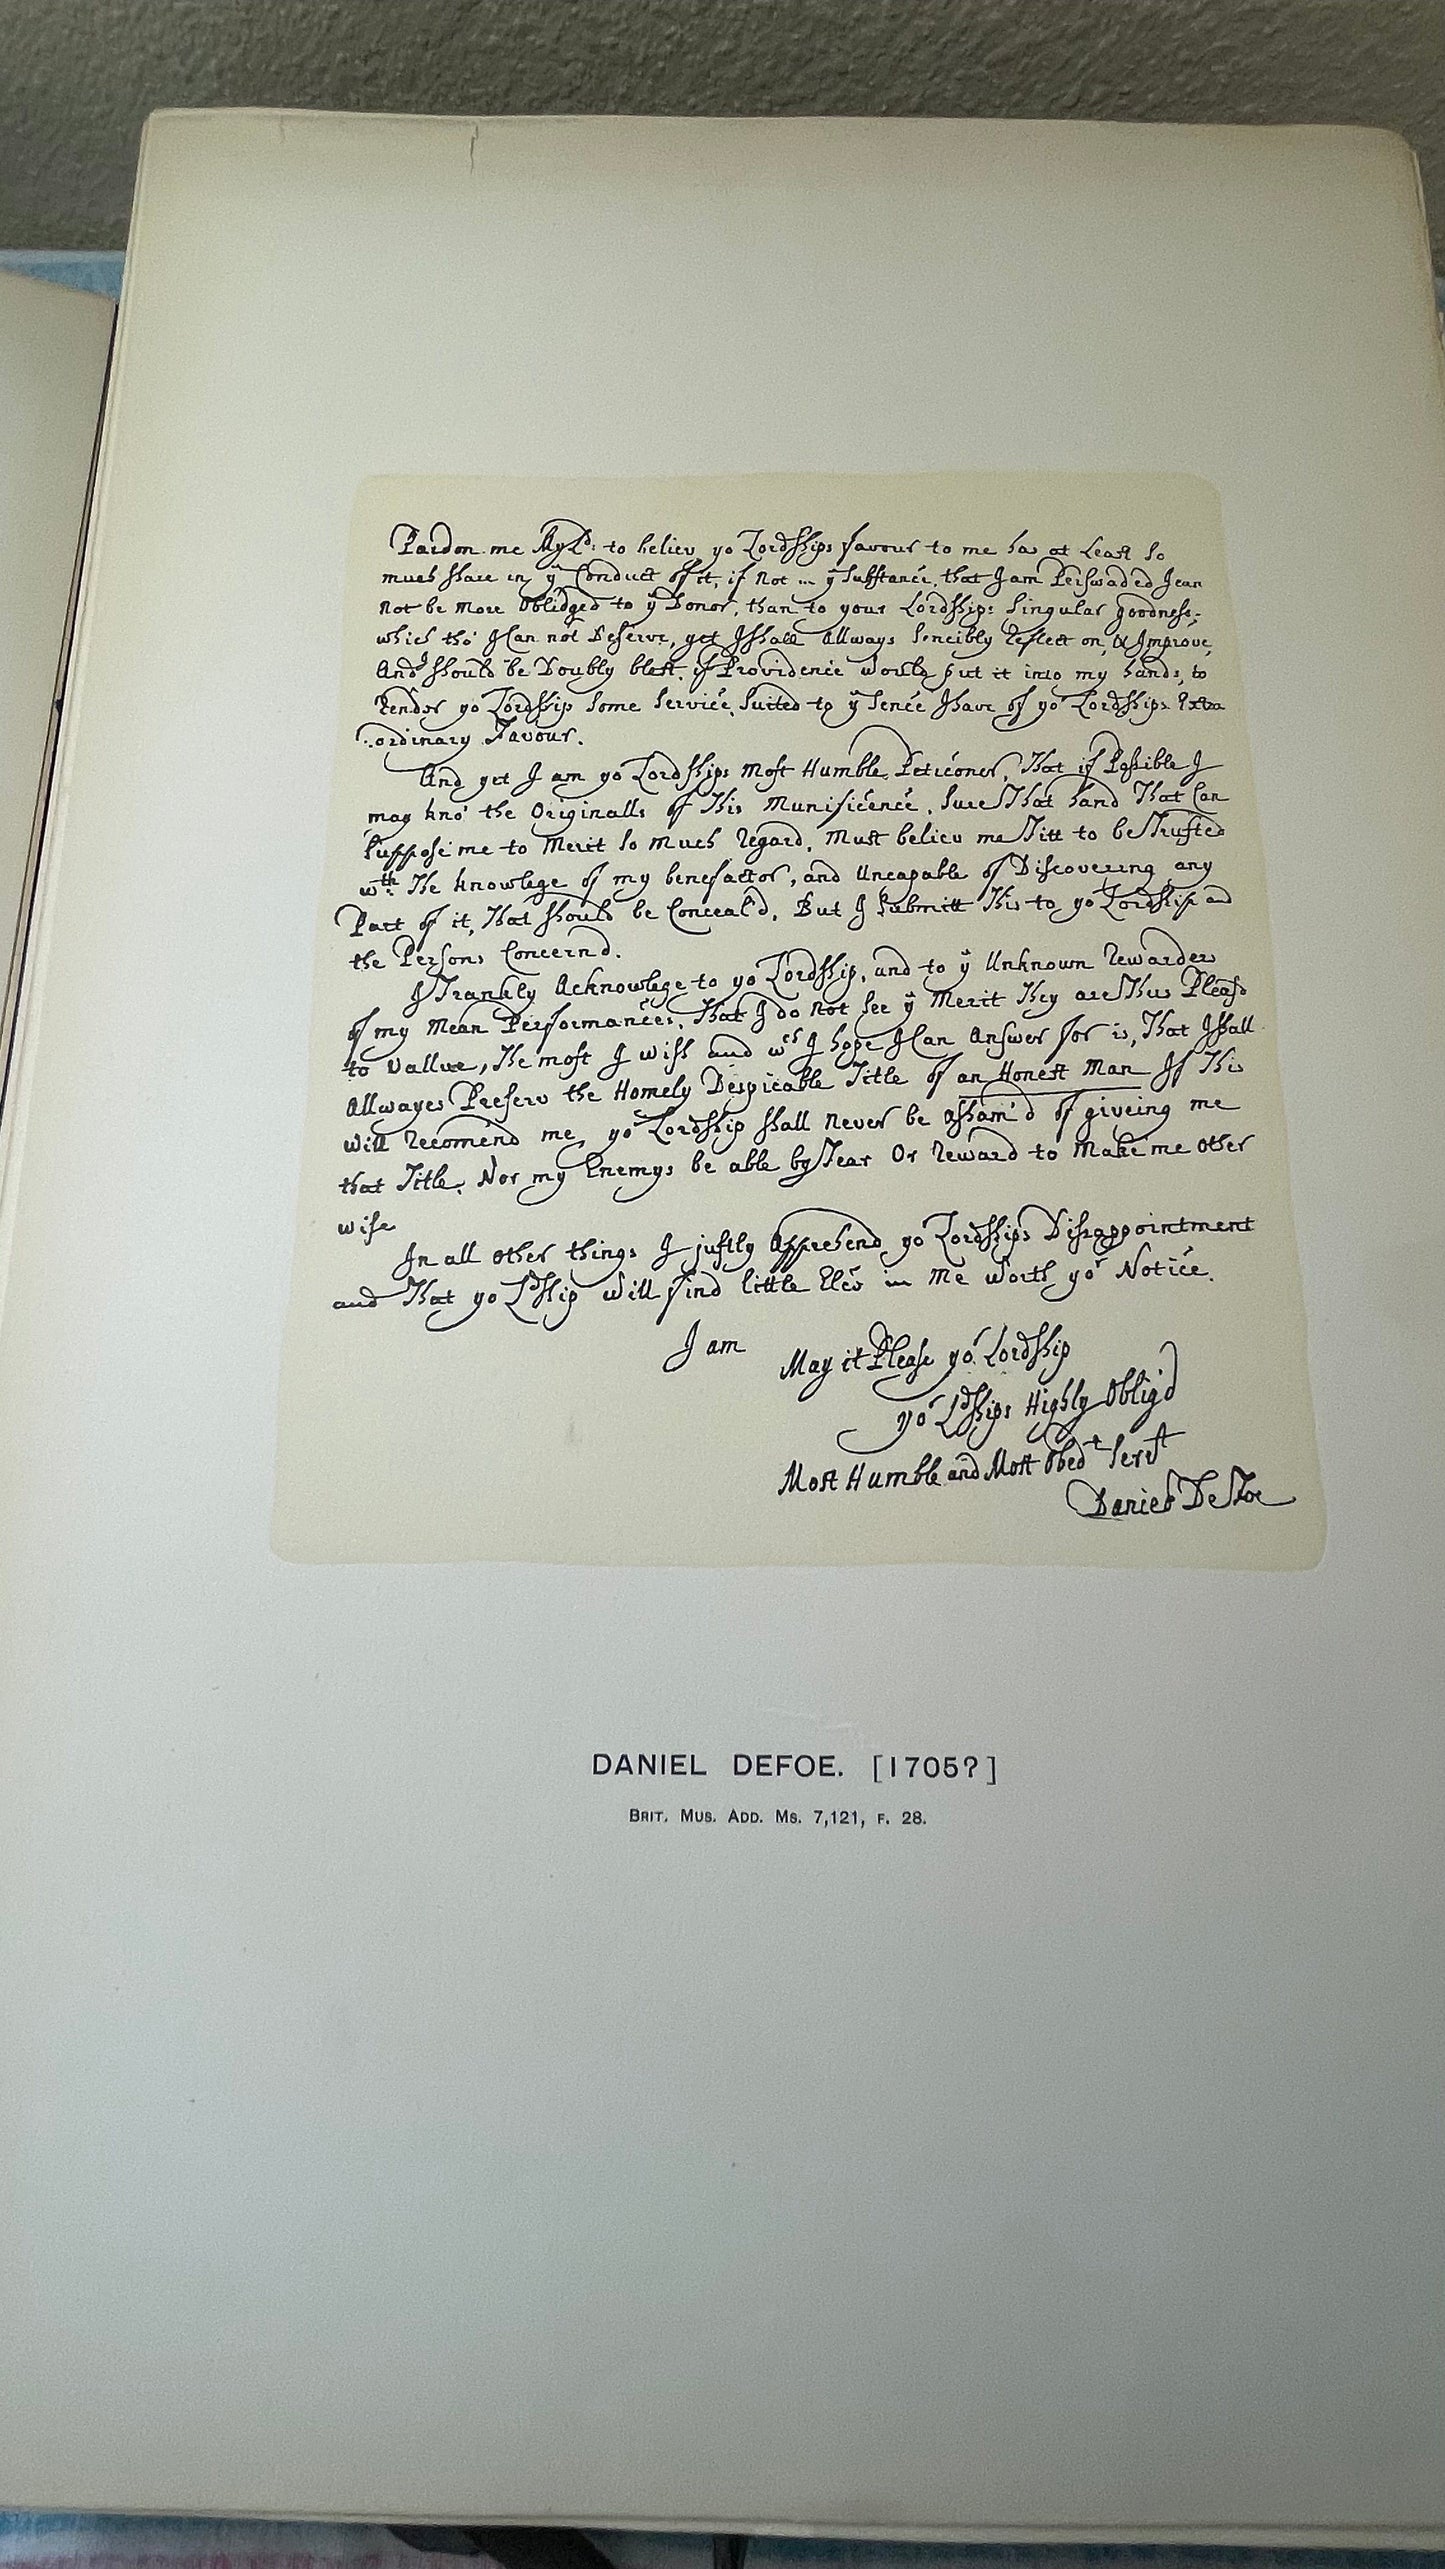 Pardon me My Ld: to believ yor Lordships favour to me has at Least So
much share in ye Conduct of it, if not ... ye Substance, that I am Perswaded I can
not be more Oblidged to ye Donor, than to your Lordships Singular goodness,
which tho' I Can not Deserve, yet I shall Allways Sencibly Reflect on, & Improve,
And I should be Doubly blest, if Providence would put it into my hands, to
Render yor Lordship Some Service, Suited to ye Sence I have of yor Lordships Extra
ordinary Favour.
And yet I am yor Lordships Most Humble Peticoner, That if Possible I
may kno' the Originalls of This Munificence, Sure That hand That Can
Suppose me to Merit So Much Regard, Must believ me Fitt to be Trusted
wth The knowlege of my benefactor, and Uncapable of Discovering any
Part of it, That should be Conceal'd. But I Submitt This to yor Lordship and
the Persons Concernd.
I Frankly Acknowlege to yor Lordship, and to ye Unknown Rewarders
of my Mean Performances, That I do not See ye Merit They are Thus Pleas'd
to Vallue, The most I wish and wch I hope I Can Answer for is, That I shall
Allwayes Preserv the Homely Despicable Title of an Honest Man If This
will recomend me, yor Lordship shall never be asham'd of giveing me
that Title, Nor my Enemys be able by Fear Or Reward to Make me other
wise
In all other things I justly Apprehend yor Lordships Disappointment
and That yor Ldship will find little Else in me worth yor Notice.
I am
May it Please yor Lordship
yor Ldships Highly Oblig'd
Most Humble and Most Obedt Servt
Daniel De Foe
DANIEL DEFOE. [1705?]
BRIT. MUS. ADD. MS. 7,121, F. 28.